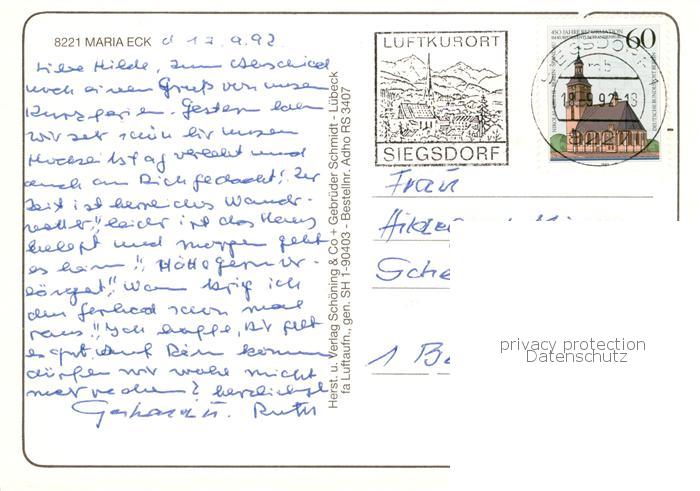 8221 MARIA ECK d 17.9.92
Liebe Hilde, zum Abschied
noch einen Gruß von unseren
Kurzferien. Gestern haben
wir sehr schön hier unseren
Hochzeitstag verlebt und
auch an Dich gedacht! Zur
Zeit ist herrliches Wander-
wetter!, leider ist das Haus
belegt und morgen geht
es heim!
Wann krieg ich
den schon mal
raus!! Ich hoffe, Dir geht
es gut. Auf Dein kommen
dürfen wir wohl nicht
mehr rechnen? herzlichst
Gerhard u. Ruth
Herst. u. Verlag Schöning & Co + Gebrüder Schmidt - Lübeck
fa Luftaufn., gen. SH 1-90403 - Bestellnr. Adho RS 3407
LUFTKURORT
SIEGSDORF
450 JAHRE REFORMATION
60
DEUTSCHE BUNDESPOST BERLIN
SIEGSDORF
mb
18.-9.92-18
Frau
1 Be
privacy protection
Datenschutz